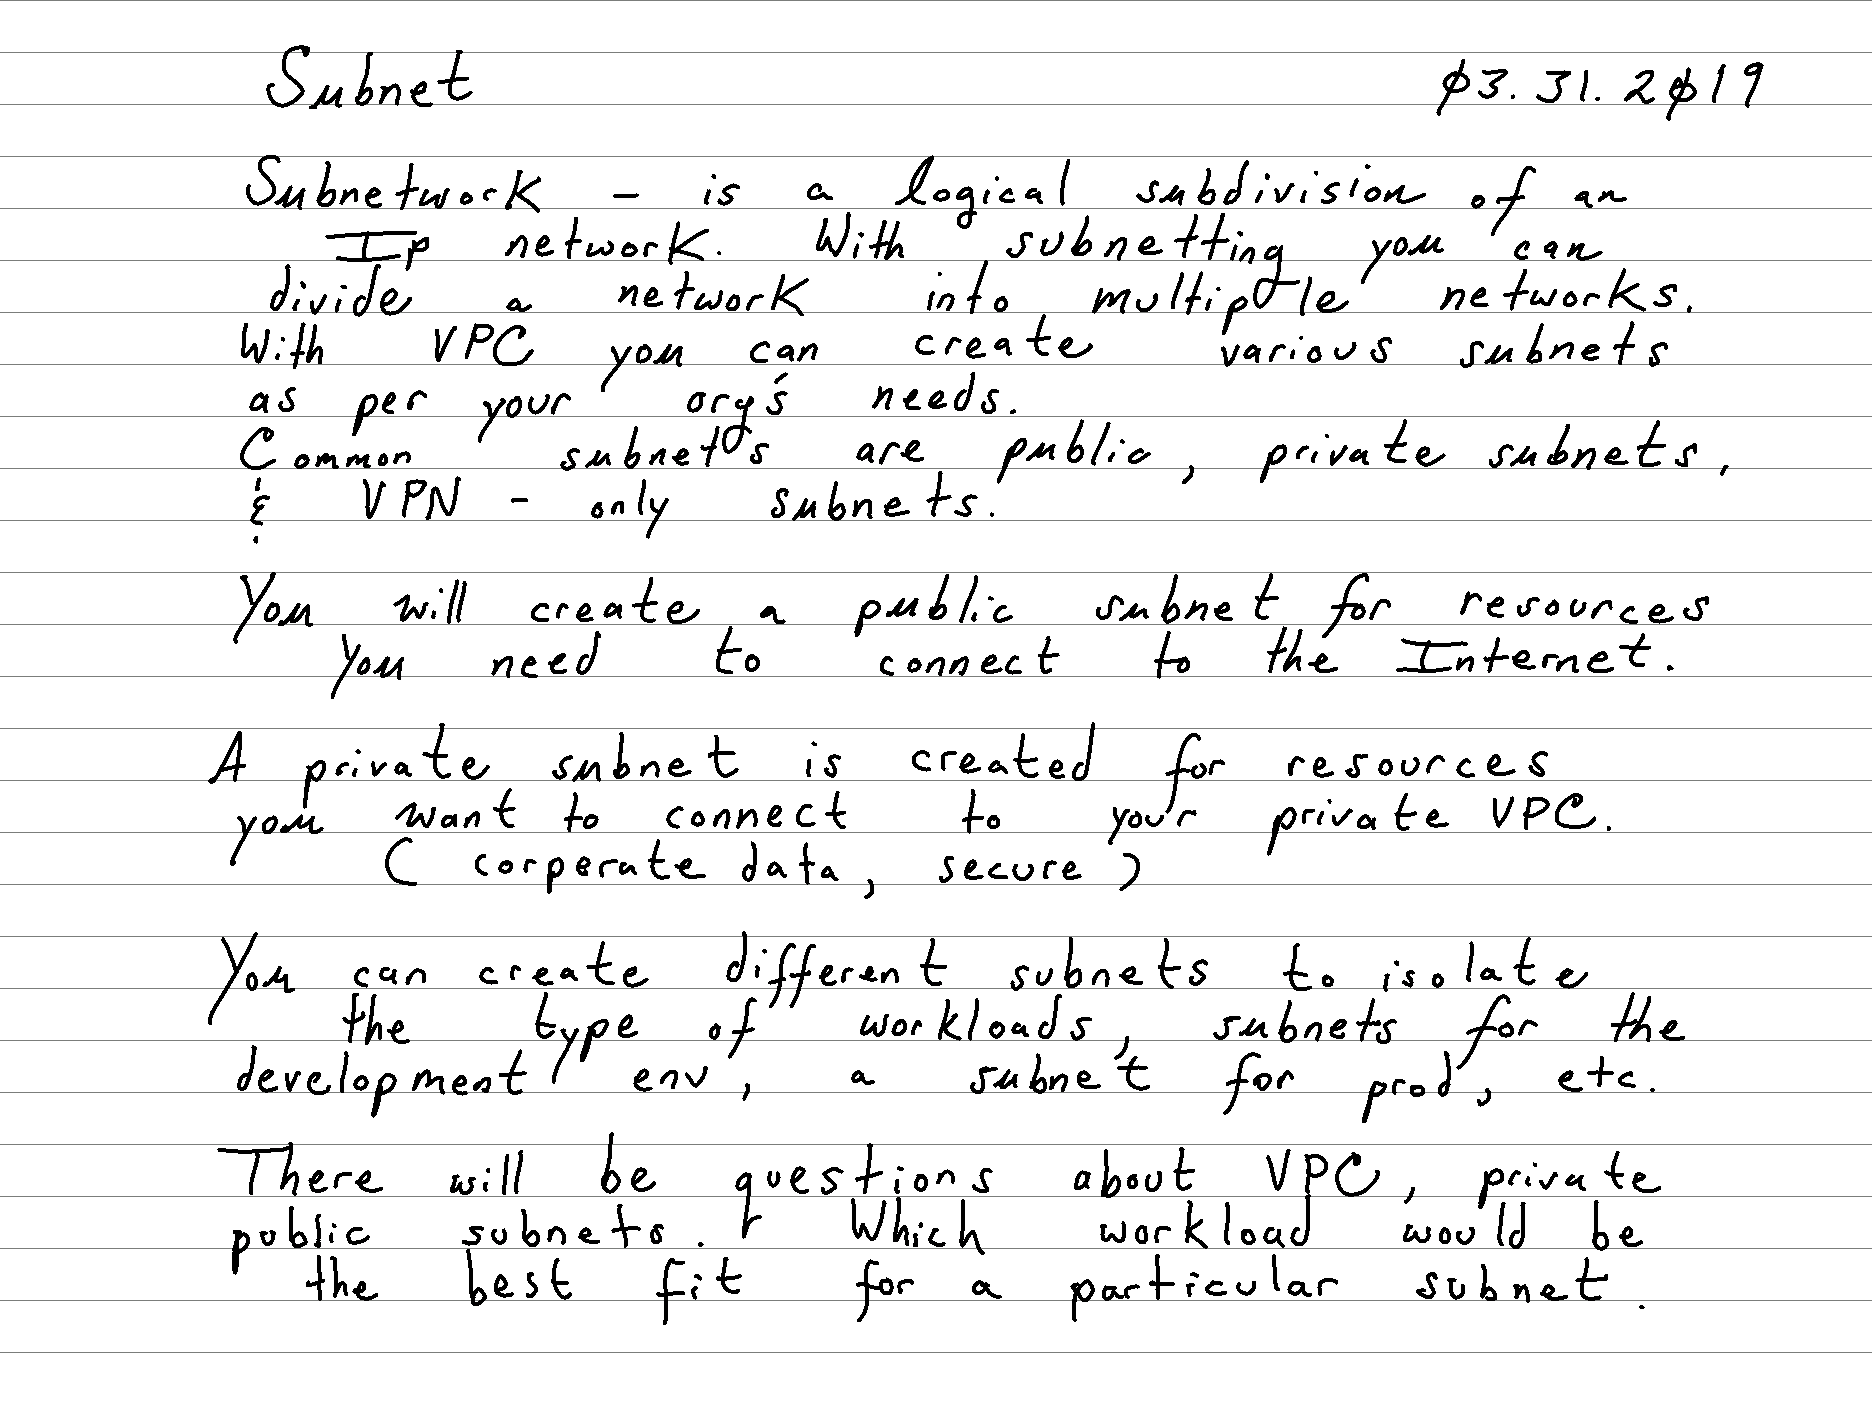 Subnet 03.31.2019
Subnetwork - is a logical subdivision of an
Ip network. With subnetting you can
divide a network into multiple networks.
With VPC you can create various subnets
as per your org's needs.
Common subnets are public, private subnets,
& VPN - only subnets.
You will create a public subnet for resources
you need to connect to the Internet.
A private subnet is created for resources
you want to connect to your private VPC.
( corperate data, secure )
You can create different subnets to isolate
the type of workloads, subnets for the
development env, a subnet for prod, etc.
There will be questions about VPC, private
public subnets. Which workload would be
the best fit for a particular subnet.